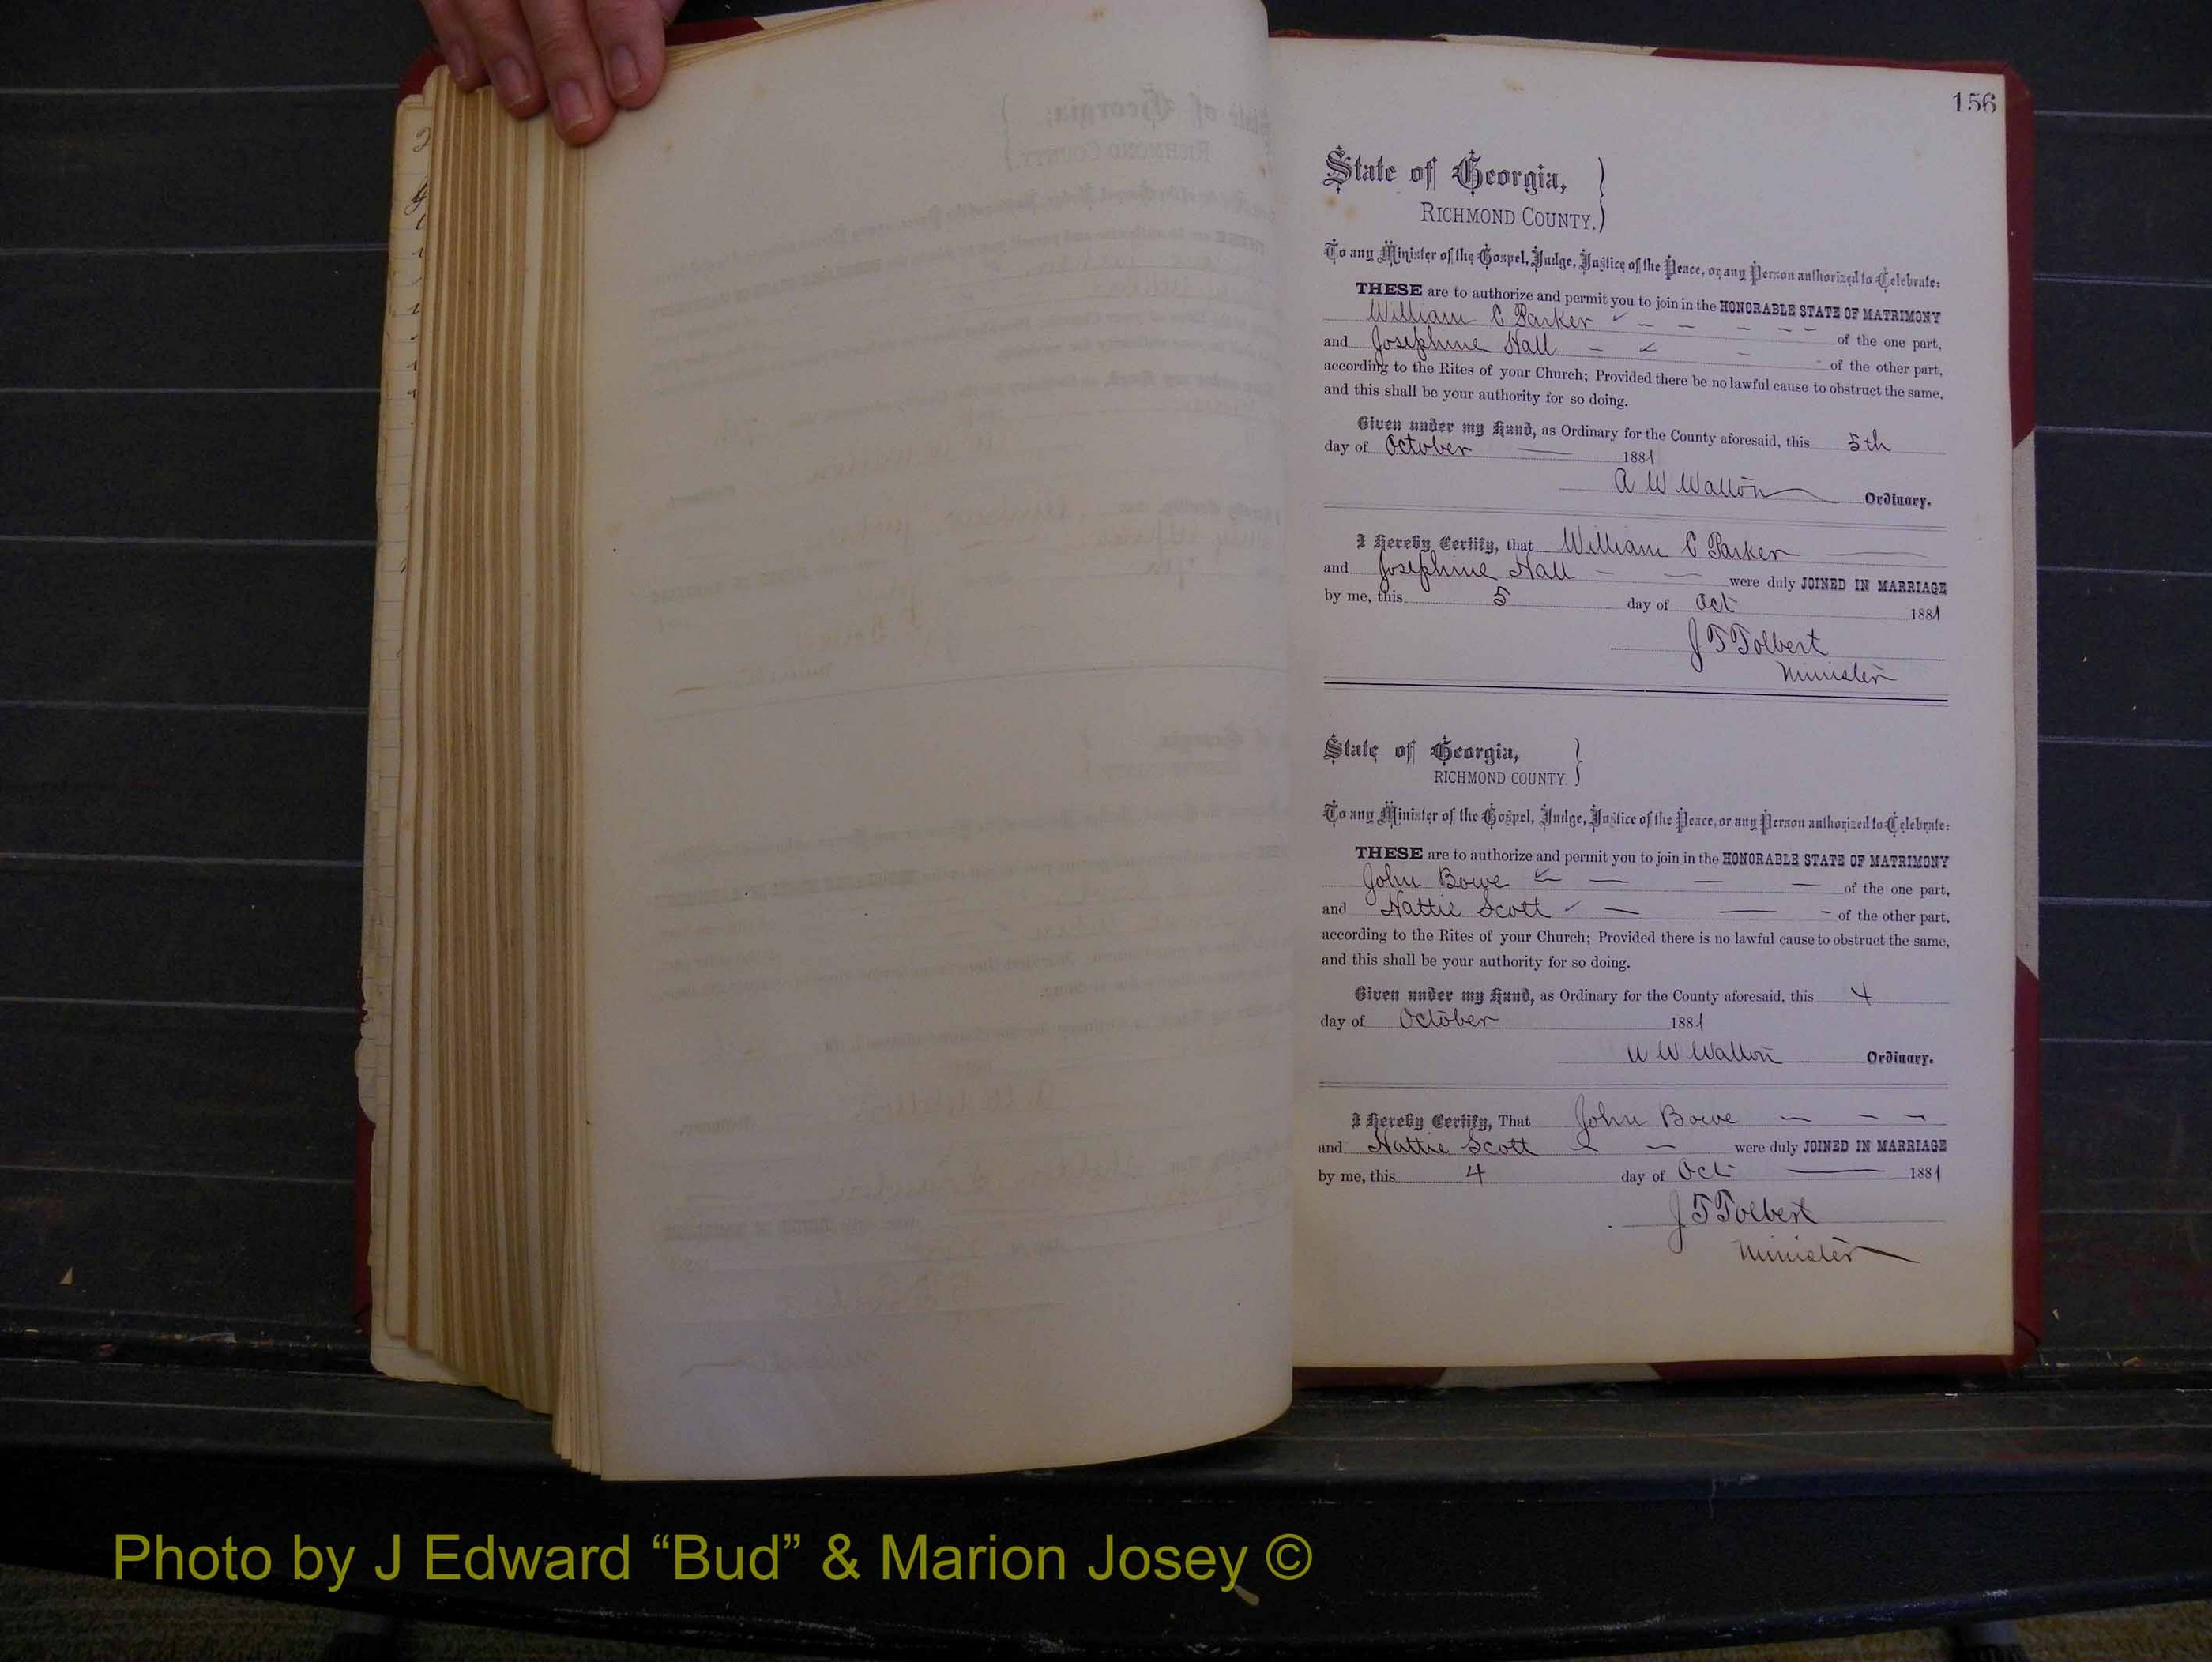 156
State of Georgia,
RICHMOND COUNTY.
To any Minister of the Gospel, Judge, Justice of the Peace, or any Person authorized to Celebrate:
THESE are to authorize and permit you to join in the HONORABLE STATE OF MATRIMONY
William C Parker of the one part,
and Josephine Hall of the other part,
according to the Rites of your Church; Provided there be no lawful cause to obstruct the same,
and this shall be your authority for so doing.
Given under my Hand, as Ordinary for the County aforesaid, this 5th
day of October 1881
A W Walton Ordinary.
I Hereby Certify, that William C Parker
and Josephine Hall were duly JOINED IN MARRIAGE
by me, this 5 day of Oct 1881
J T Tolbert
Minister
State of Georgia,
RICHMOND COUNTY.
To any Minister of the Gospel, Judge, Justice of the Peace, or any Person authorized to Celebrate:
THESE are to authorize and permit you to join in the HONORABLE STATE OF MATRIMONY
John Bowe of the one part,
and Hattie Scott of the other part,
according to the Rites of your Church; Provided there is no lawful cause to obstruct the same,
and this shall be your authority for so doing.
Given under my Hand, as Ordinary for the County aforesaid, this 4
day of October 1881
A W Walton Ordinary.
I Hereby Certify, That John Bowe
and Hattie Scott were duly JOINED IN MARRIAGE
by me, this 4 day of Oct 1881
J T Tolbert
Minister
Photo by J Edward “Bud” & Marion Josey ©